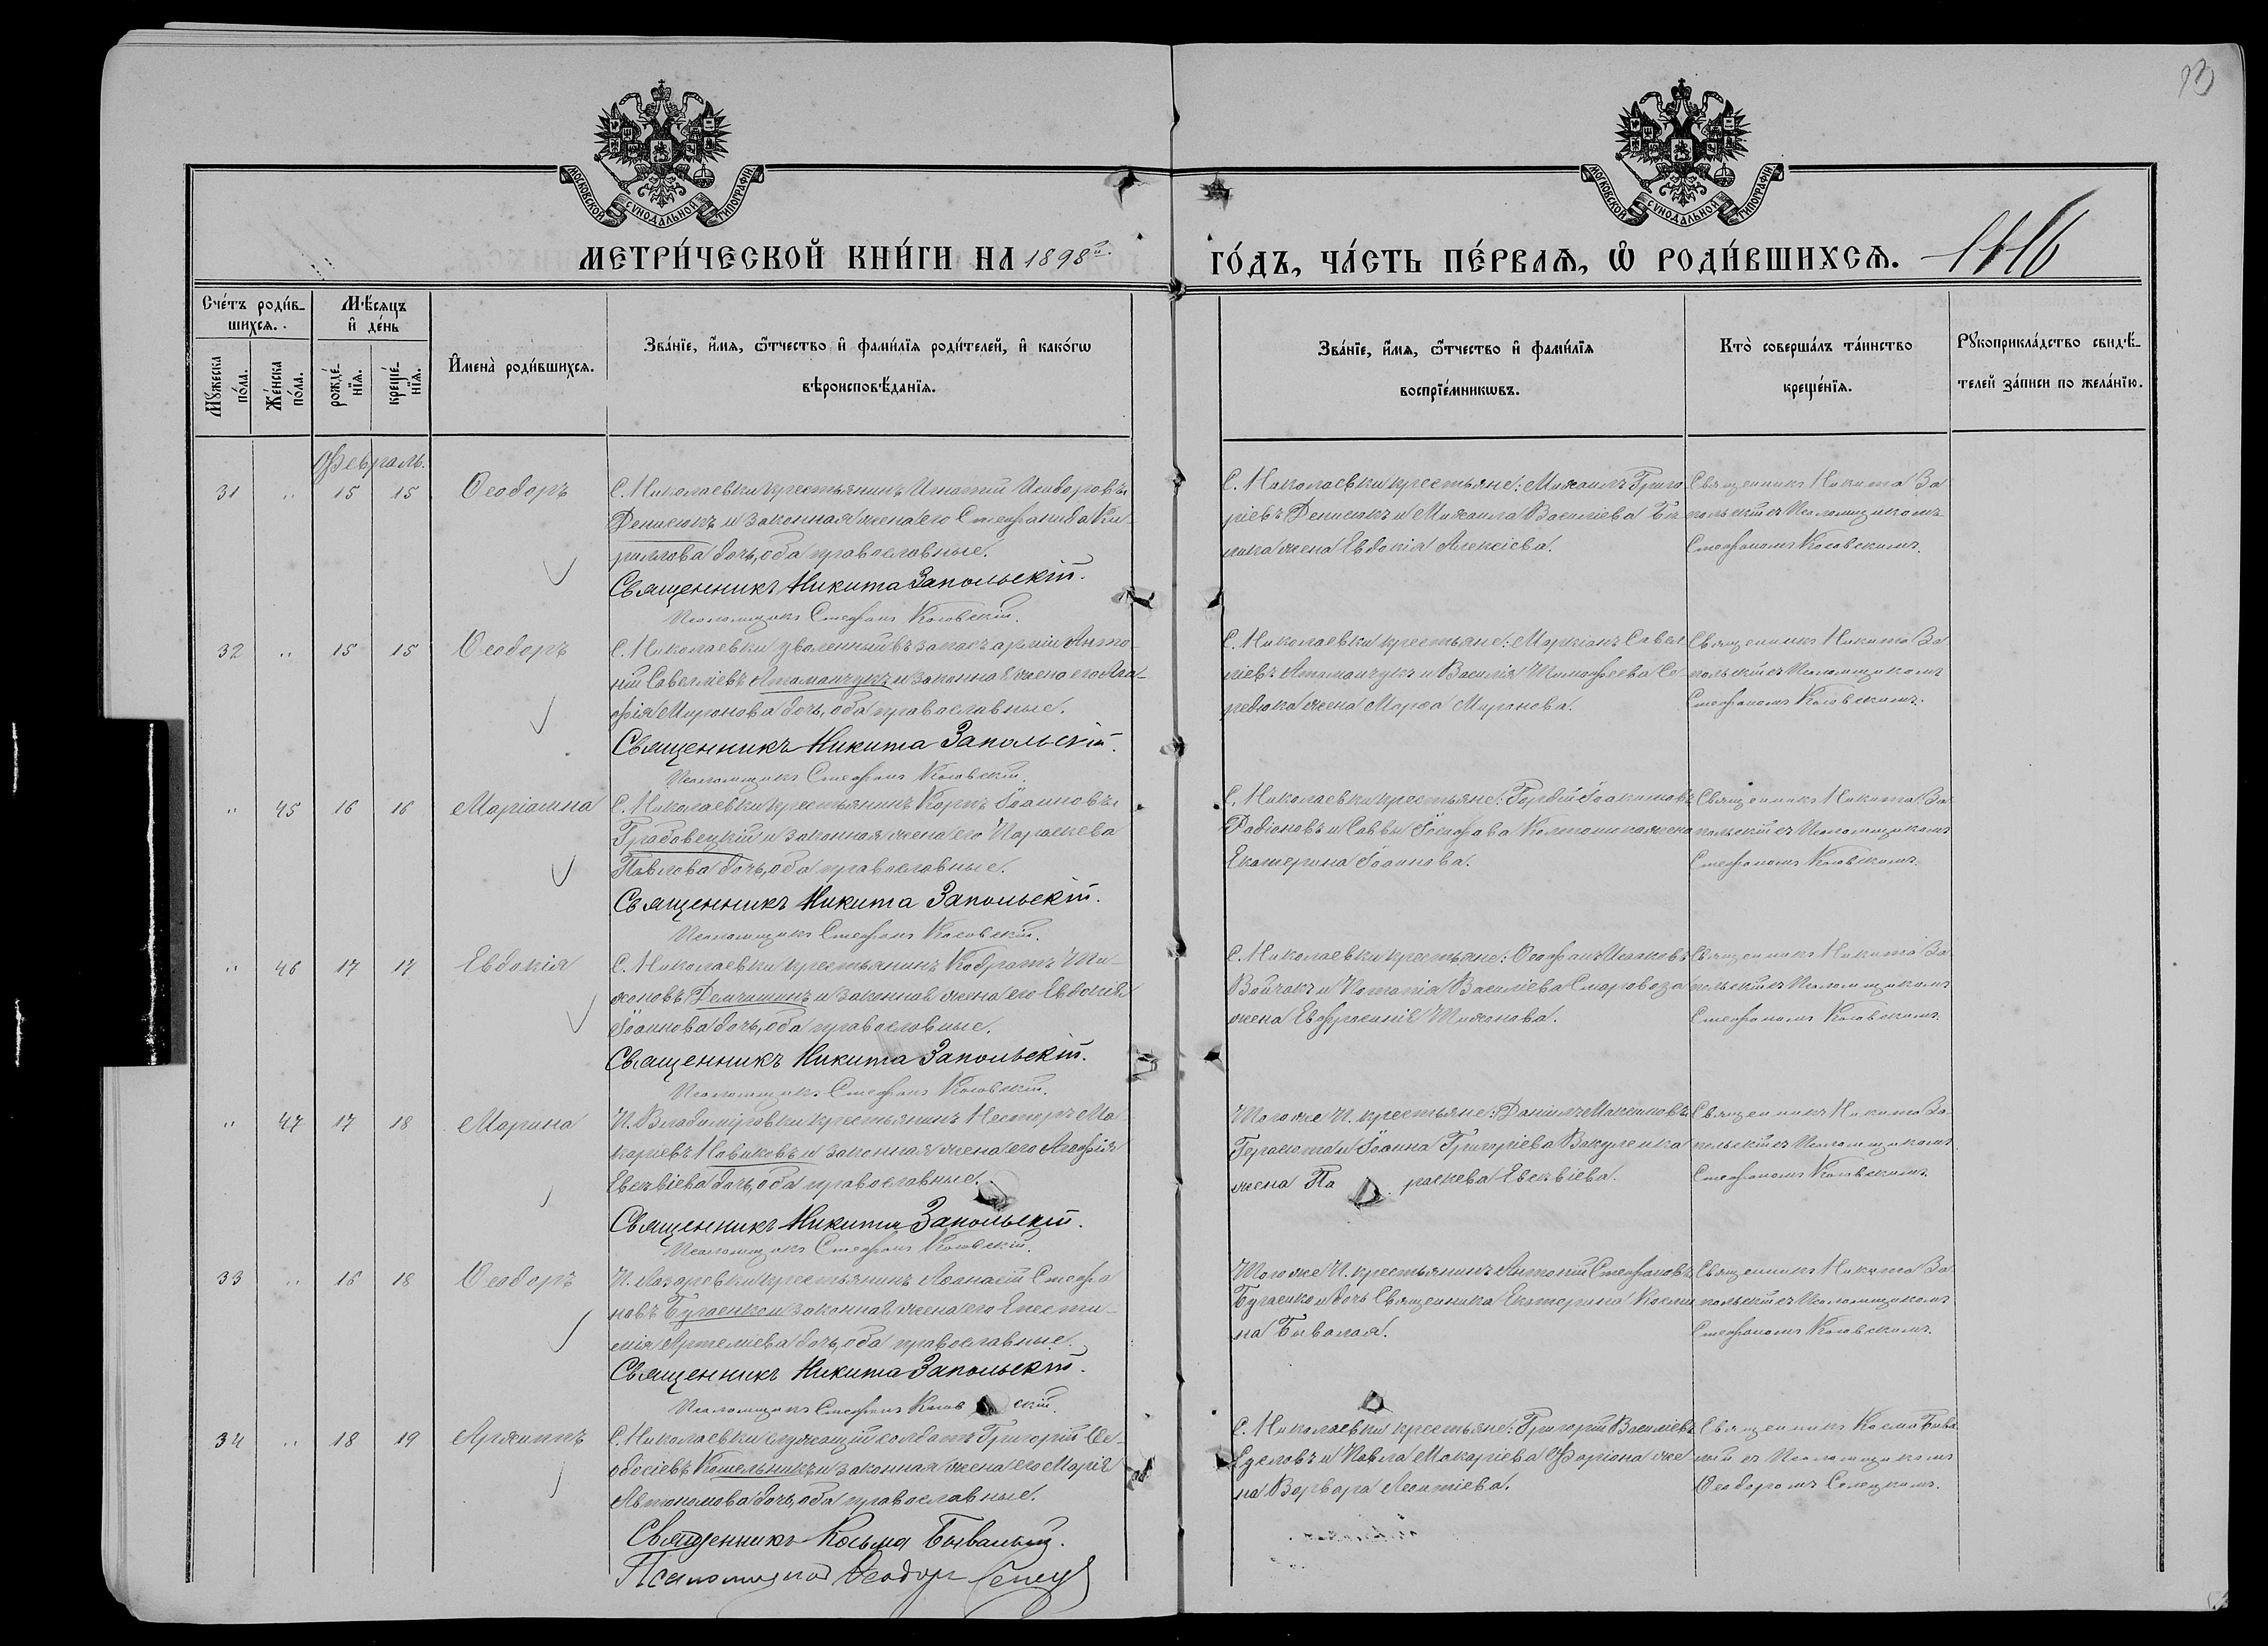 93
МОСКОВСКОЙ СѴНОДАЛЬНОЙ ТИПОГРАФІИ
МОСКОВСКОЙ СѴНОДАЛЬНОЙ ТИПОГРАФІИ
МЕТРИ́ЧЕСКОЙ КНИ́ГИ НА 1898й
ГО́ДЪ, ЧА́СТЬ ПЕ́РВАѦ, Ѡ҆ РОДИ́ВШИХСѦ. 1116
Сче́тъ роди́в-
шихсѧ.
Мꙋ́жеска
по́ла.
Же́нска
по́ла.
Мѣ́сѧцъ
и҆ де́нь
рожде́-
нїѧ.
креще́-
нїѧ.
И҆мена̀ роди́вшихсѧ.
Зва́нїе, и҆́мѧ, ѻ҆́тчество и҆ фами́лїѧ роди́телей, и҆ како́гѡ
вѣроисповѣ́данїѧ.
Зва́нїе, и҆́мѧ, ѻ҆́тчество и҆ фами́лїѧ
воспрїе́мникѡвъ.
Кто̀ соверша́лъ та́инство
креще́нїѧ.
Рꙋкоприкла́дство свидѣ́-
телей за́писи по жела́нїю.
Февраль.
31 " 15 15 Ѳеодоръ
С. Николаевки крестьянинъ Игнатій Исидоровъ
Денисюкъ и законная жена его Стефанида Ки-
риллова дочь, оба православные.
Священникъ Никита Запольскій.
Псаломщикъ Стефанъ Косовскій.
С. Николаевки крестьяне: Михаилъ Григо
ріевъ Денисюкъ и Михаила Василіева
жена Евдокія Алексіева.
Священникъ Никита За
польскій съ Псаломщикомъ
Стефаномъ Косовскимъ.
32 " 15 15 Ѳеодоръ
С. Николаевки уволенный въ запасъ арміи Анто
ній Савеліевъ Атаманчукъ и законная жена его Ага-
фія Миронова дочь, оба православные.
Священникъ Никита Запольскій.
Псаломщикъ Стефанъ Косовскій.
С. Николаевки крестьяне: Маркіанъ Савел
ліевъ Атаманчукъ и Василія Тимофеева Се-
редюка жена Марѳа Миронова.
Священникъ Никита За
польскій съ Псаломщикомъ
Стефаномъ Косовскимъ.
" 45 16 16 Маріамна
С. Николаевки крестьянинъ Карпъ Іоанновъ
Грабовецкій и законная жена его Параскева
Павлова дочь, оба православные.
Священникъ Никита Запольскій.
Псаломщикъ Стефанъ Косовскій.
С. Николаевки крестьяне: Гордій Іоакимовъ
Радіоновъ и Саввы Іосифова жена
Екатерина Іоаннова.
Священникъ Никита За
польскій съ Псаломщикомъ
Стефаномъ Косовскимъ.
" 46 17 17 Евдокія
С. Николаевки крестьянинъ Кодратъ Ти-
хоновъ Демчишинъ и законная жена его Евдокія
Іоаннова дочь, оба православные.
Священникъ Никита Запольскій.
Псаломщикъ Стефанъ Косовскій.
С. Николаевки крестьяне: Ѳеофанъ Исааковъ
Войчакъ и Потапія Василіева Старовоза
жена Евфросинія Тихонова.
Священникъ Никита За
польскій съ Псаломщикомъ
Стефаномъ Косовскимъ.
" 47 17 18 Марина
П. Владиміровки крестьянинъ Несторъ Ма
каріевъ Новиковъ и законная жена его Агафія
Евсевіева дочь, оба православные.
Священникъ Никита Запольскій.
Псаломщикъ Стефанъ Косовскій.
Того же П. крестьяне: Даніилъ Максимовъ
Герасюта и Іоанна Григоріева Вакуленка
жена Параскева Евсевіева.
Священникъ Никита За
польскій съ Псаломщикомъ
Стефаномъ Косовскимъ.
33 " 16 18 Ѳеодоръ
П. Лазаревки крестьянинъ Аѳанасій Стефа
новъ Бугаенко и законная жена его Еписти-
мія Артеміева дочь, оба православные.
Священникъ Никита Запольскій.
Псаломщикъ Стефанъ Косовскій.
Того же П. крестьянинъ Антоній Стефановъ
Бугаенко и дочь Священника Екатерина Косми
на Бывалая.
Священникъ Никита За
польскій съ Псаломщикомъ
Стефаномъ Косовскимъ.
34 " 18 19 Архиппъ
С. Николаевки служащій солдатъ Григорій Ѳе-
одосіевъ Кательникъ и законная жена его Марія
Автономова дочь, оба православные.
Священникъ Косьма Бывалый.
Псаломщикъ Ѳеодоръ
С. Николаевки крестьяне: Григорій Василіевъ
Сусловъ и Павла Макаріева Фаріона же-
на Варвара Леонтіева.
Священникъ Косма Быва
лый съ Псаломщикомъ
Ѳеодоромъ Селецкимъ.